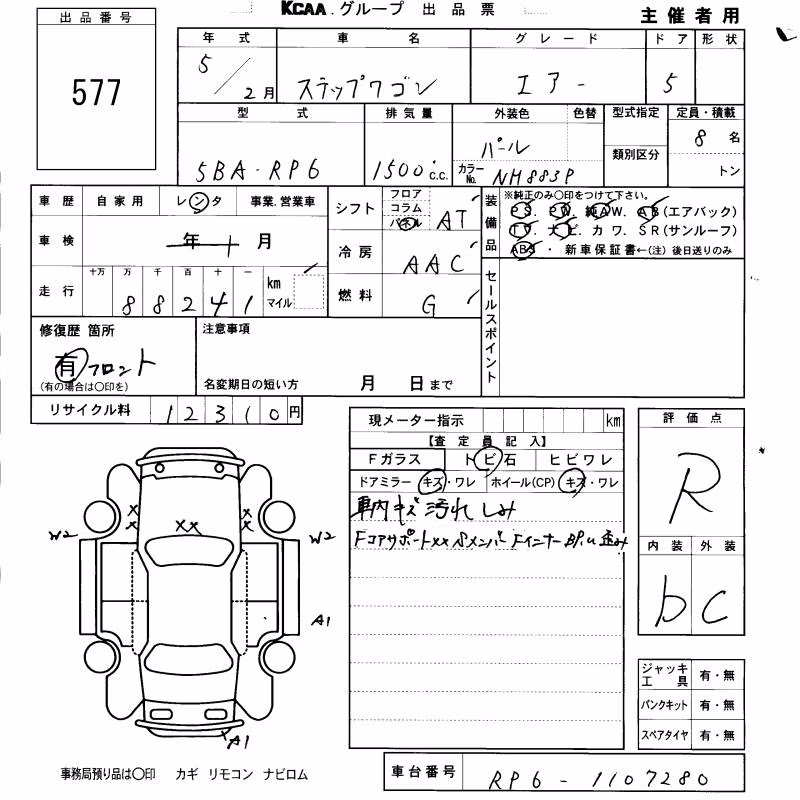 KCAA.グループ 出品票
主催者用
出品番号
577
年式 車名 グレード ドア 形状
5/2月 ステップワゴン エアー 5
型式 排気量 外装色 色替 型式指定 定員・積載
5BA-RP6 1500c.c. パール 8名
類別区分
カラーNo. NH883P トン
車歴 自家用 レンタ 事業.営業車
シフト フロア コラム パネル AT
装備品 ※純正のみ○印をつけて下さい。
PS. PW. 純AW. AB(エアバック)
TV. ナビ. カワ. SR(サンルーフ)
ABS・新車保証書←(注)後日送りのみ
車検 年 月
冷房 AAC
セールスポイント
走行 十万 万 千 百 十 一
88241 km マイル
燃料 G
修復歴 箇所
有 フロント
(有の場合は○印を)
注意事項
名変期日の短い方 月 日まで
リサイクル料 12310円
現メーター指示 km
【査定員記入】
Fガラス トビ石 ヒビワレ
ドアミラー キズ・ワレ ホイール(CP) キズ・ワレ
車内キズ 汚れ しみ
FコアサポートXX Sメンバ Fインナー
評価点
R
内装 外装
b C
XX
W2 W2
A1
A1
ジャッキ工具 有・無
パンクキット 有・無
スペアタイヤ 有・無
事務局預り品は○印 カギ リモコン ナビロム
車台番号 RP6-1107280